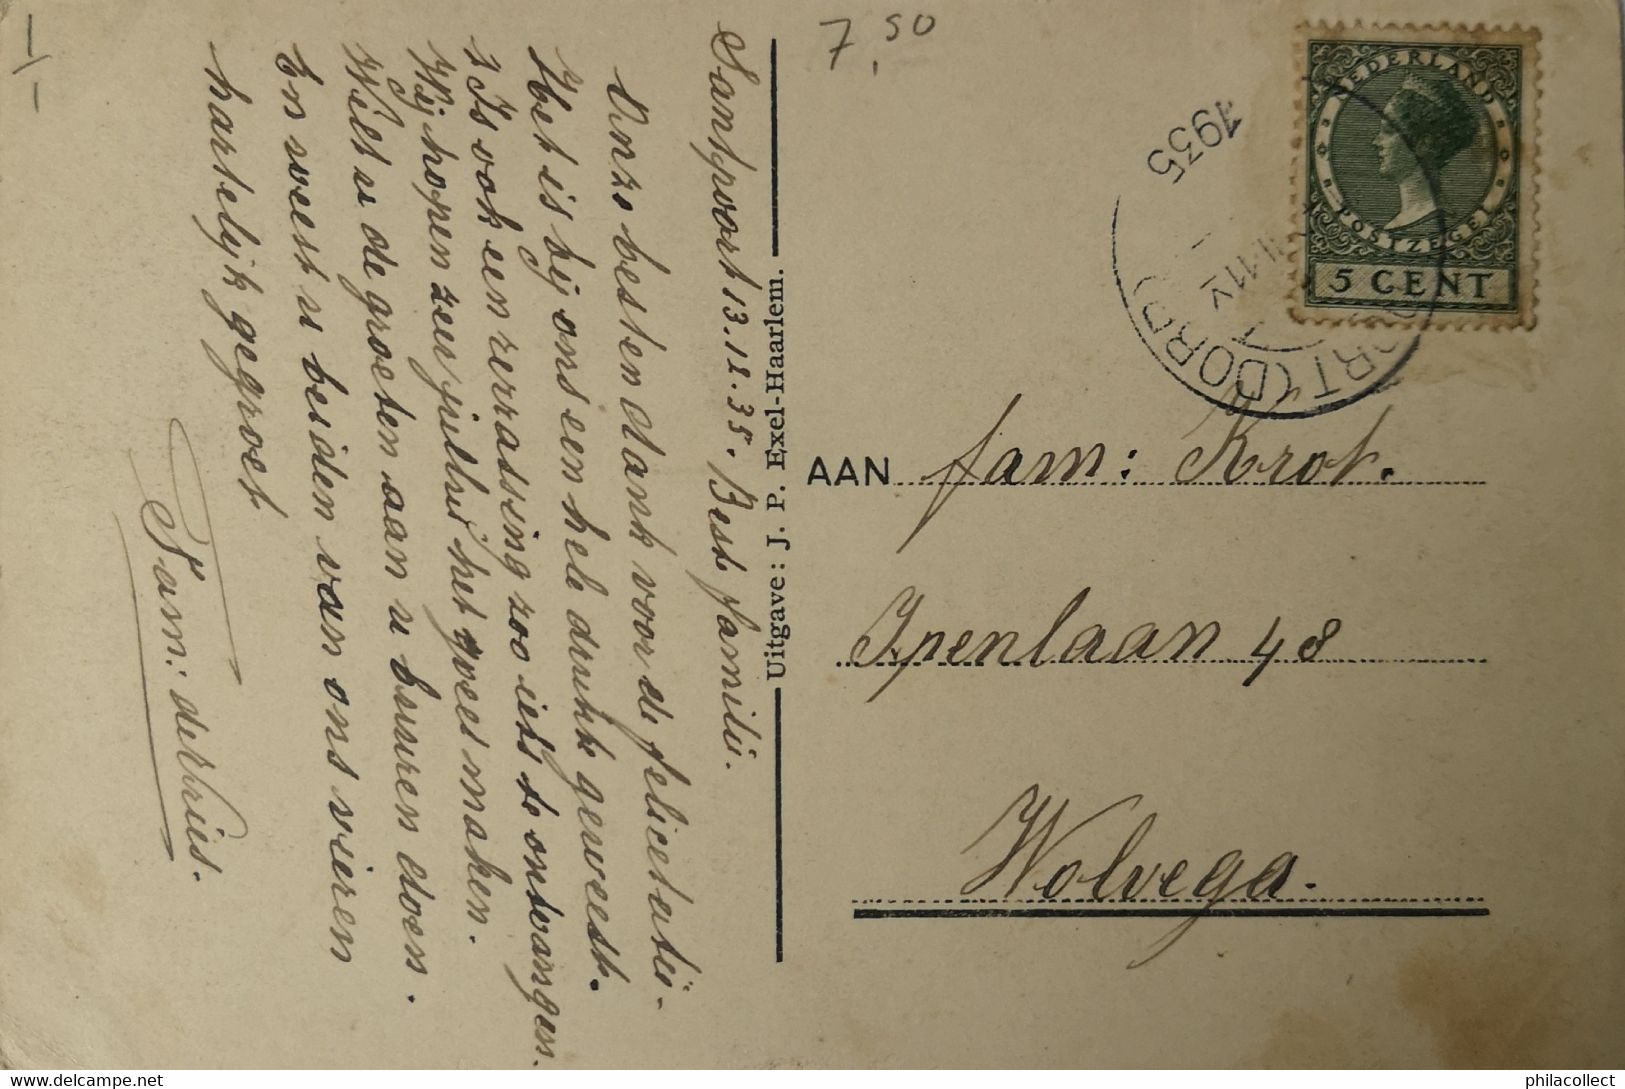 7,50
NEDERLAND
POSTZEGEL
5 CENT
1935
11V
ORT (DORP)
Santpoort 13.12.35. Best familie.
Onze besten dank voor de felicetatie-
Het is bij ons een hele drukte geweest.
't Is ook een verrassing zoo iets te ontvangen.
Wij hopen zeer jullie het goed maken.
Wilt u de groeten aan u buuren doen.
En weest u beiden van ons vieren
hartelijk gegroet
Fam: de Vries.
Uitgave: J. P. Exel-Haarlem.
AAN fam: Krot.
Ipenlaan 48
Wolvega.
philacollect @ www.delcampe.net